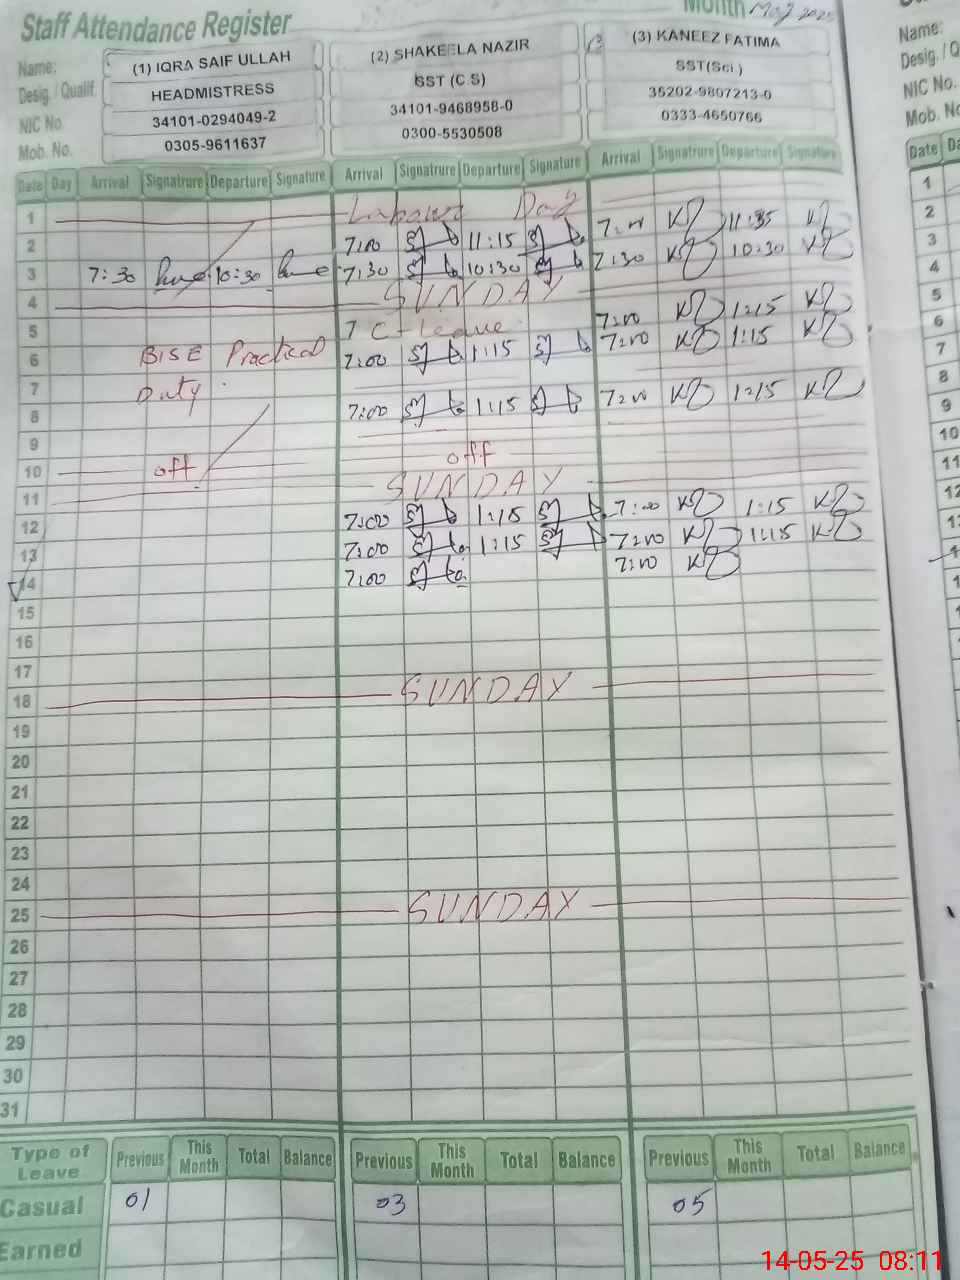 Staff Attendance Register
Month May 2025
Name: (1) IQRA SAIF ULLAH (2) SHAKEELA NAZIR (3) KANEEZ FATIMA Name:
Desig. / Qualif. HEADMISTRESS SST (C.S) SST(Sci.) Desig. / Q
NIC No. 34101-0294049-2 34101-9468958-0 35202-9807213-0 NIC No.
Mob. No. 0305-9611637 0300-5530508 0333-4650766 Mob. No
Date Day Arrival Signatrure Departure Signature Arrival Signatrure Departure Signature Arrival Signatrure Departure Signature Date Da
1 Labour Day 1
2 7:00 11:15 7:00 11:35 2
3 7:30 10:30 7:30 10:30 7:30 10:30 3
4 SUNDAY 4
5 C-leave 7:00 1:15 5
6 BISE Practical 7:00 1:15 7:00 1:15 6
7 Duty 7
8 7:00 1:15 7:00 1:15 8
9 9
10 off off 10
11 SUNDAY 11
12 7:00 1:15 7:00 1:15 12
13 7:00 1:15 7:00 1:15
14 7:00 7:00
15
16
17
18 SUNDAY
19
20
21
22
23
24
25 SUNDAY
26
27
28
29
30
31
Type of Leave Previous This Month Total Balance Previous This Month Total Balance Previous This Month Total Balance
Casual 01 03 05
Earned
14-05-25 08:11